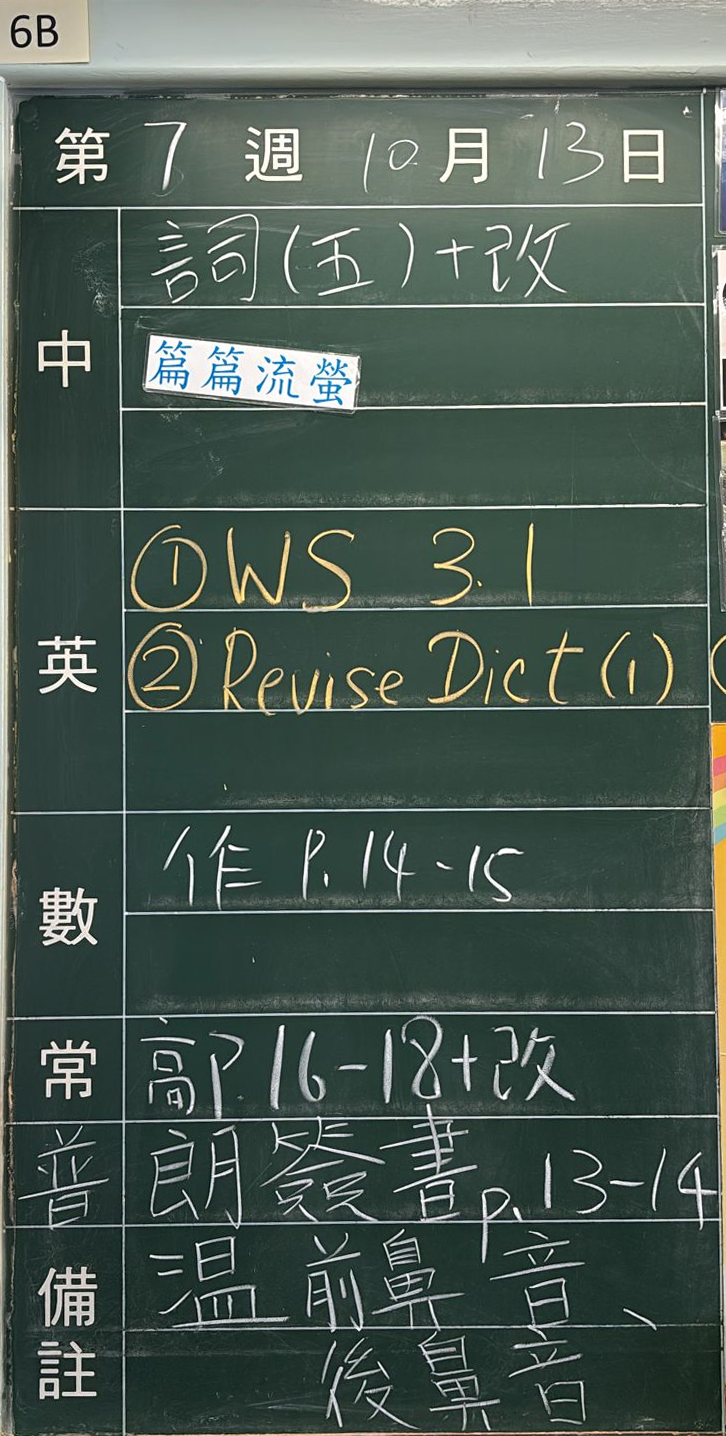 6B
第 7 週 10 月 13 日
中
詞(五)+改
篇篇流螢
英
①WS 3.1
②Revise Dict(1)
數
作 P.14-15
常
P.16-18+改
普
朗簽書p.13-14
備註
温前鼻音、
後鼻音